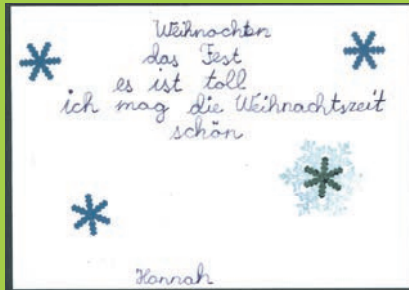 Weihnachten
das Fest
es ist toll
ich mag die Weihnachtszeit
schön
Hannah